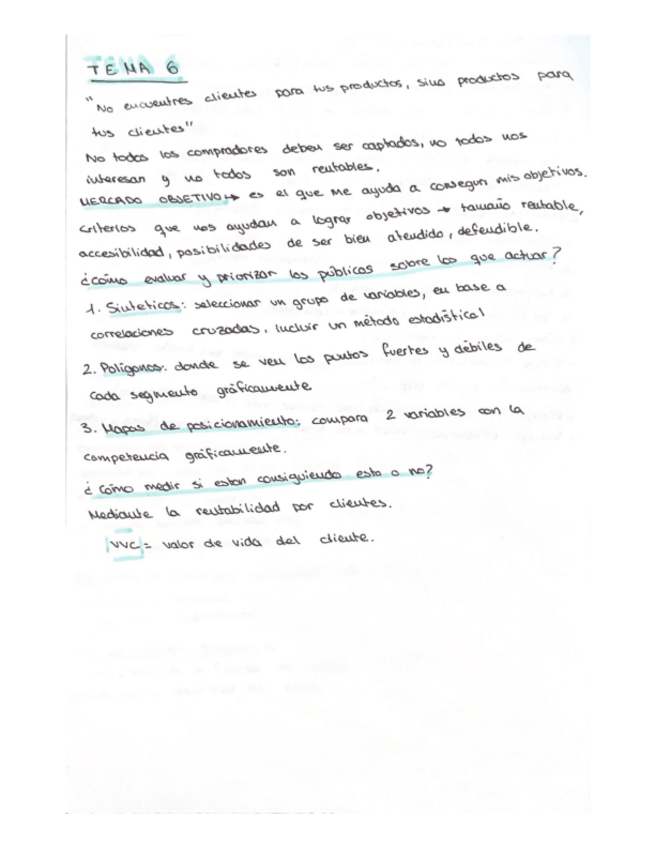 TEMA 6
"No encuentres clientes para tus productos, sino productos para
tus clientes"
No todos los compradores deben ser captados, no todos nos
interesan y no todos son rentables.
MERCADO OBJETIVO → es el que me ayuda a conseguir mis objetivos.
Criterios que nos ayudan a lograr objetivos → tamaño rentable,
accesibilidad, posibilidades de ser bien atendido, defendible.
¿Cómo evaluar y priorizar los públicos sobre los que actuar?
1. Sinteticos: seleccionar un grupo de variables, en base a
correlaciones cruzadas. Incluir un método estadístical
2. Polígonos: donde se ven los puntos fuertes y débiles de
cada segmento gráficamente
3. Mapas de posicionamiento: compara 2 variables con la
competencia gráficamente.
¿Cómo medir si estan consiguiendo esto o no?
Mediante la rentabilidad por clientes.
VVC = valor de vida del cliente.